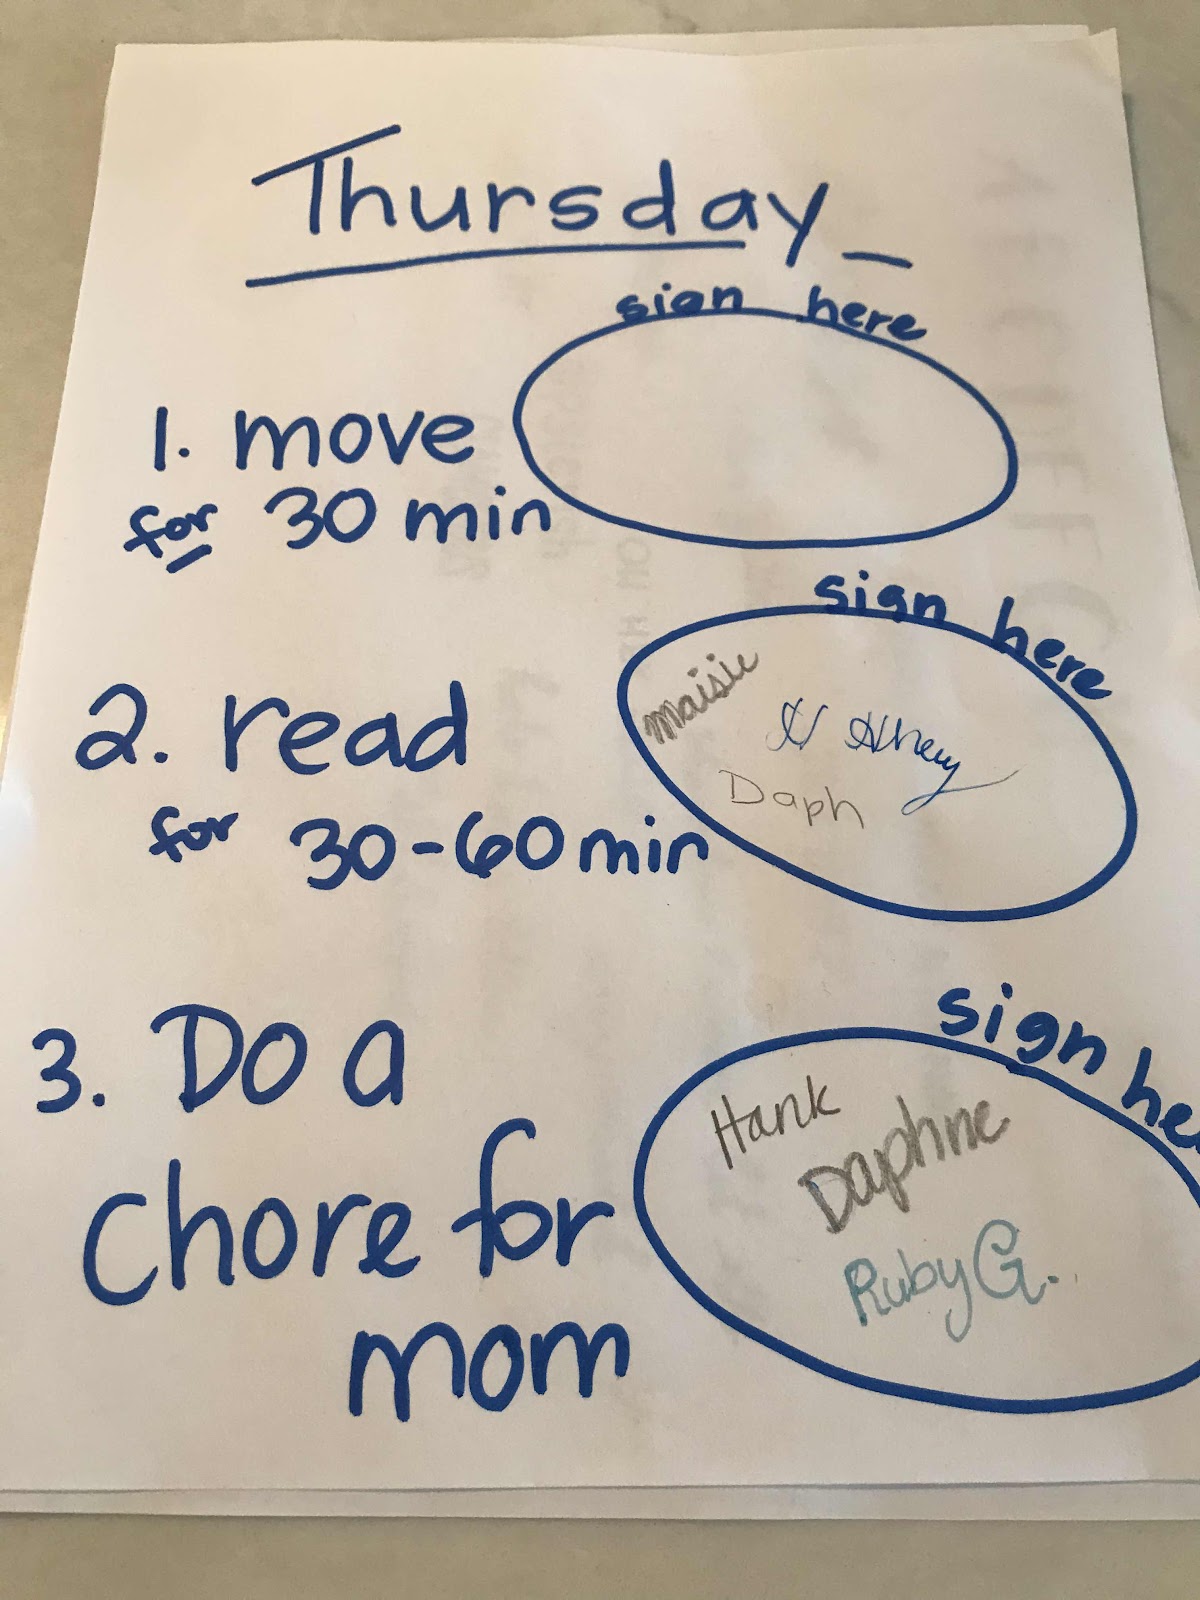 Thursday
sign here
1. move
for 30 min
sign here
2. read
for 30-60 min
Maisie
Daph
sign he
3. Do a
chore for
mom
Hank
Daphne
Ruby G.